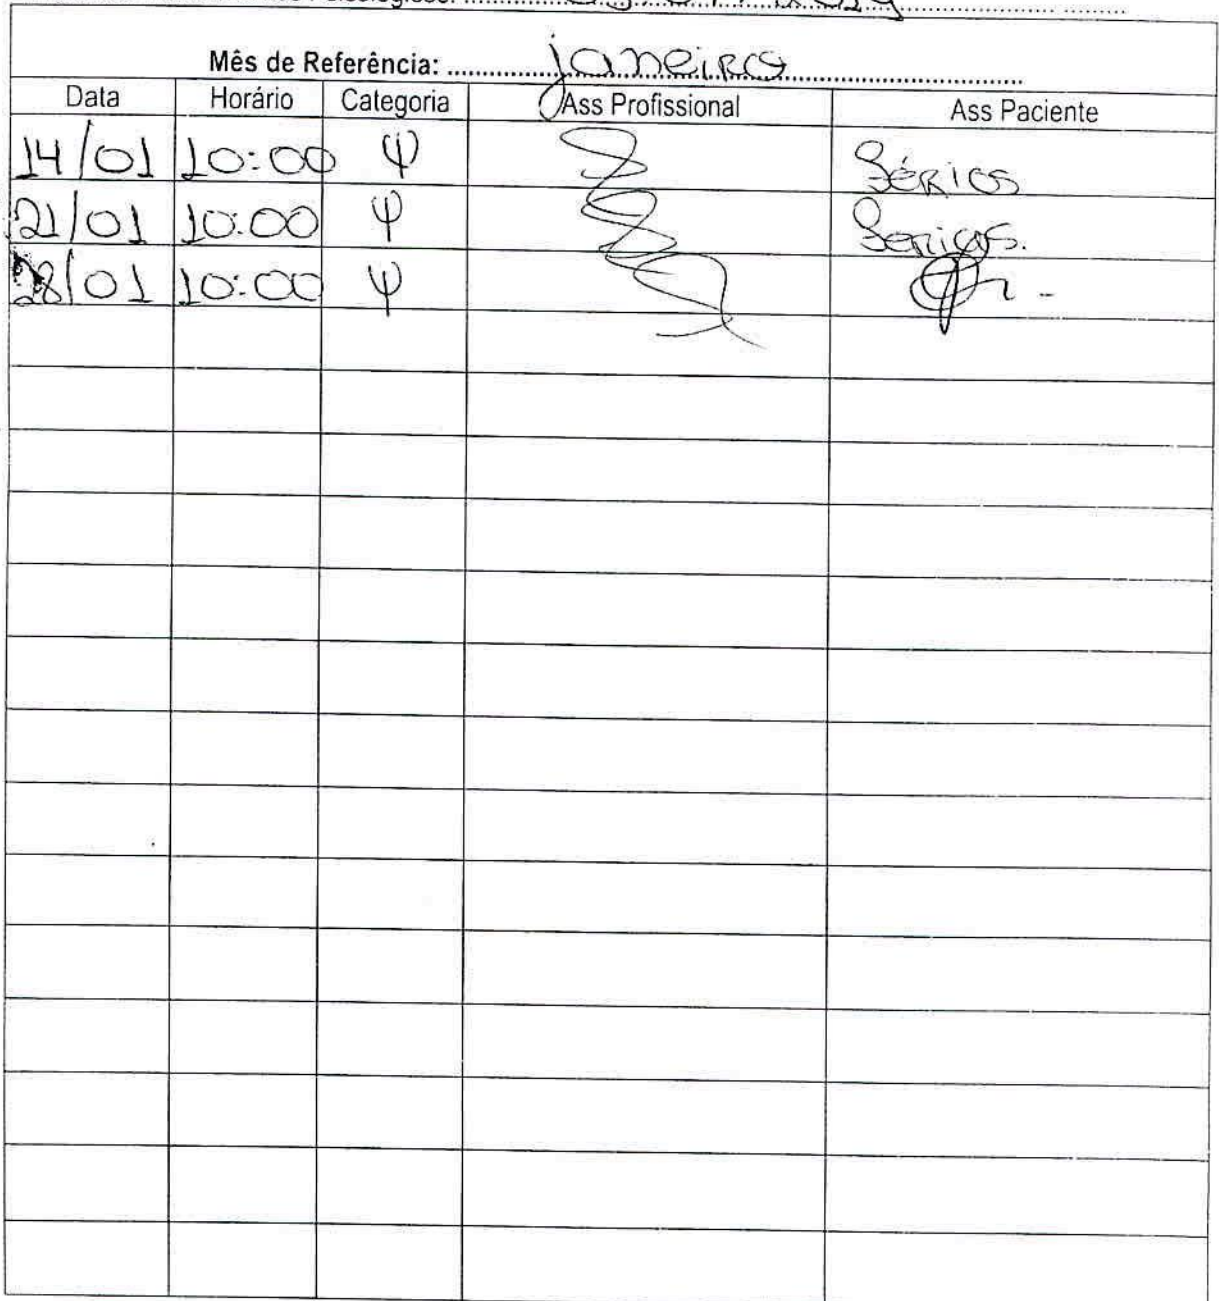 Mês de Referência: janeiro
Data Horário Categoria Ass Profissional Ass Paciente
14/01 10:00 Ψ Sérios
21/01 10:00 Ψ
28/01 10:00 Ψ